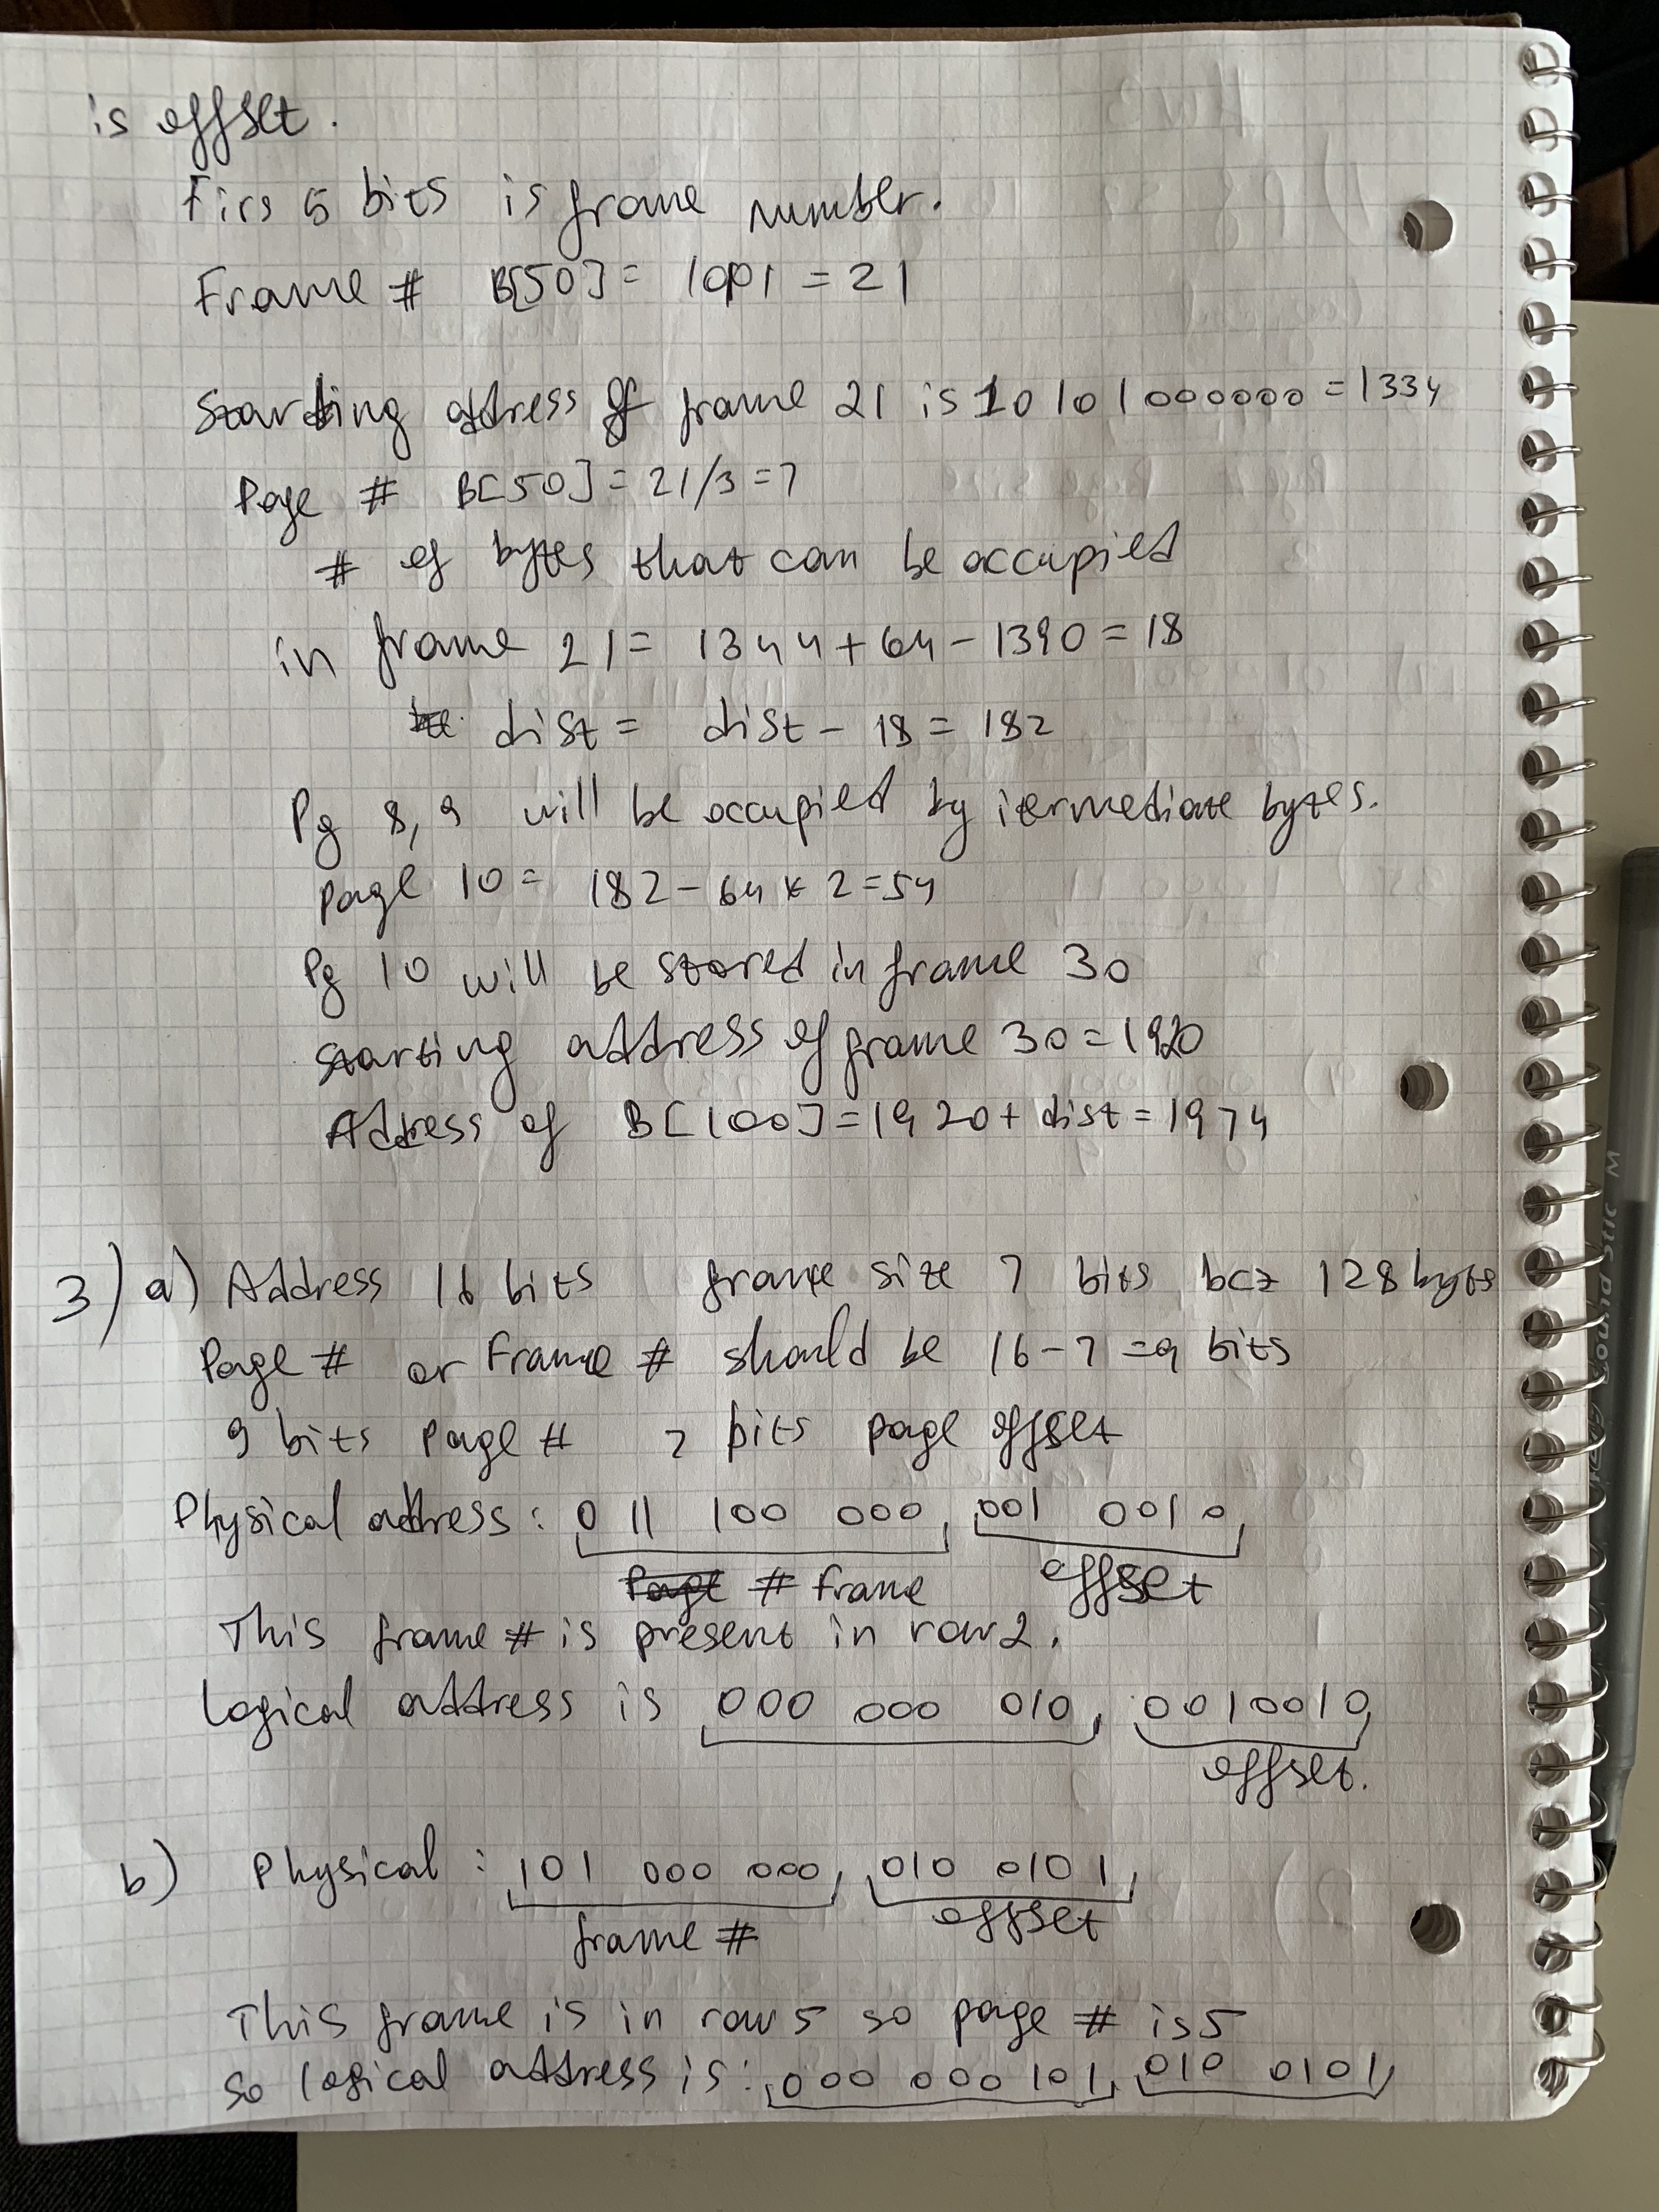 is offset.
Firs 5 bits is frame number.
Frame # B[50] = 10101 = 21
Starting address of frame 21 is 10101000000 = 1334
Page # B[50] = 21/3 = 7
# of bytes that can be occupied
in frame 21 = 1344 + 64 - 1390 = 18
dist = dist - 18 = 182
Pg 8, 9 will be occupied by itermediate bytes.
page 10 = 182 - 64 * 2 = 54
Pg 10 will be stored in frame 30
starting address of frame 30 = 1920
Address of B[100] = 1920 + dist = 1974
3) a) Address 16 bits frame size 7 bits bcz 128 bytes
Page # or Frame # should be 16 - 7 = 9 bits
9 bits Page # 7 bits page offset
Physical address: 0 11 100 000, 001 0010,
Page # Frame offset
This frame # is present in row 2.
Logical address is 000 000 010, 0010010,
offset.
b) Physical: 101 000 000, 010 0101,
frame # offset
This frame is in row 5 so page # is 5
So logical address is: 000 000 101, 010 0101,